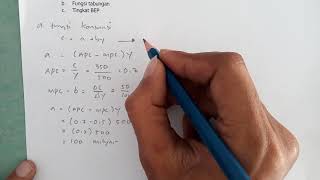 b. Fungsi tabungan
c. Tingkat BEP
a. fungsi konsumsi
c = a + by →
a = (APC - MPC) Y
APC = C/Y = 350/500 = 0.7
MPC = b = ΔC/ΔY = 50/100
a = (APC - MPC) Y
= (0.7 - 0.5) 500
= (0.2) 500
= 100 milyar